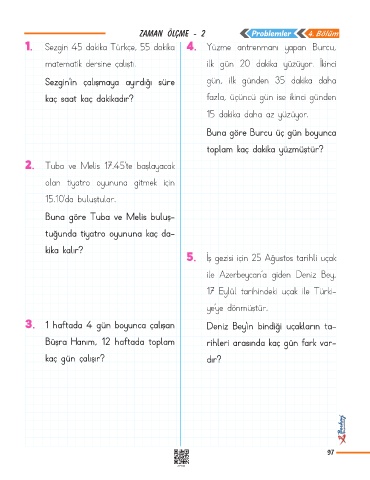 ZAMAN ÖLÇME - 2
Problemler
4. Bölüm
1. Sezgin 45 dakika Türkçe, 55 dakika
matematik dersine çalıştı.
Sezgin'in çalışmaya ayırdığı süre
kaç saat kaç dakikadır?
2. Tuba ve Melis 17.45'te başlayacak
olan tiyatro oyununa gitmek için
15.10'da buluştular.
Buna göre Tuba ve Melis buluş-
tuğunda tiyatro oyununa kaç da-
kika kalır?
3. 1 haftada 4 gün boyunca çalışan
Büşra Hanım, 12 haftada toplam
kaç gün çalışır?
4. Yüzme antrenmanı yapan Burcu,
ilk gün 20 dakika yüzüyor. İkinci
gün, ilk günden 35 dakika daha
fazla, üçüncü gün ise ikinci günden
15 dakika daha az yüzüyor.
Buna göre Burcu üç gün boyunca
toplam kaç dakika yüzmüştür?
5. İş gezisi için 25 Ağustos tarihli uçak
ile Azerbeycan'a giden Deniz Bey,
17 Eylül tarihindeki uçak ile Türki-
ye'ye dönmüştür.
Deniz Bey'in bindiği uçakların ta-
rihleri arasında kaç gün fark var-
dır?
97